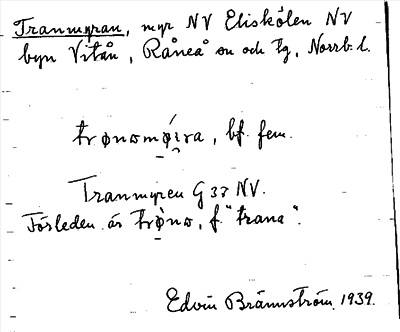 Tranmyran, myr NV Eliskölen NV
byn Vitån, Råneå sn och tg, Norrb. l.
trønɷmǿi̯ra, bf. fem.
Tranmyren G 37 NV.
Förleden är trø̀nɷ, f. "trana".
Edvin Brännström, 1939.